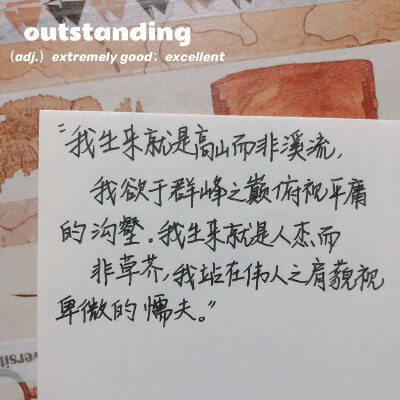 outstanding
(adj.) extremely good; excellent
"我生来就是高山而非溪流,
我欲于群峰之巅俯视平庸
的沟壑。我生来就是人杰而
非草芥,我站在伟人之肩藐视
卑微的懦夫。"
versit